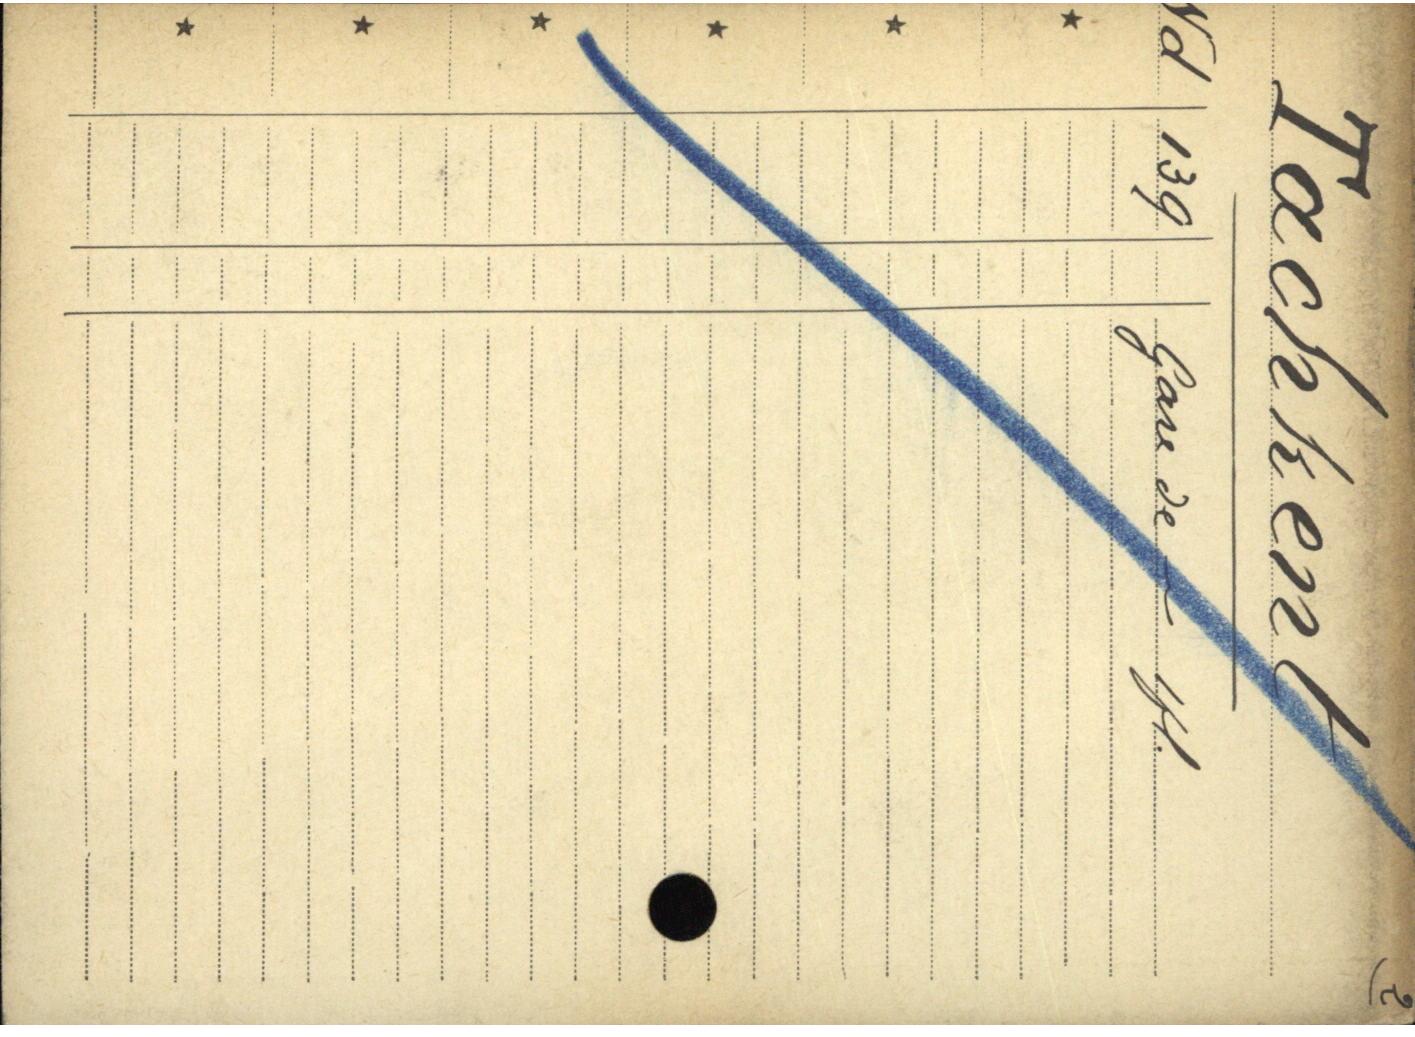 2
Tachkent
Nd 139 Gare de — 1fl.